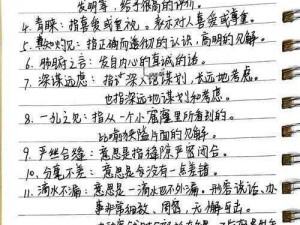 发明等，给予很高的评价。
4. 青睐：指喜爱或重视。表示对人喜爱或尊重。
5. 真知灼见：指正确而透彻的认识，高明的见解。
6. 肺腑之言：发自内心的真诚的话。
7. 深谋远虑：指深入地谋划，长远地考虑。
也指深远地谋划和考虑。
8. 一孔之见：指从一个小窟窿里所看到的。
比喻狭隘片面的见解。
9. 严丝合缝：意思是指缝隙严密闭合。
10. 分毫不差：意思是没有一点差错。
11. 滴水不漏：意思是一滴水也不外漏。形容说话、办
事非常细致、周密，无懈可击。